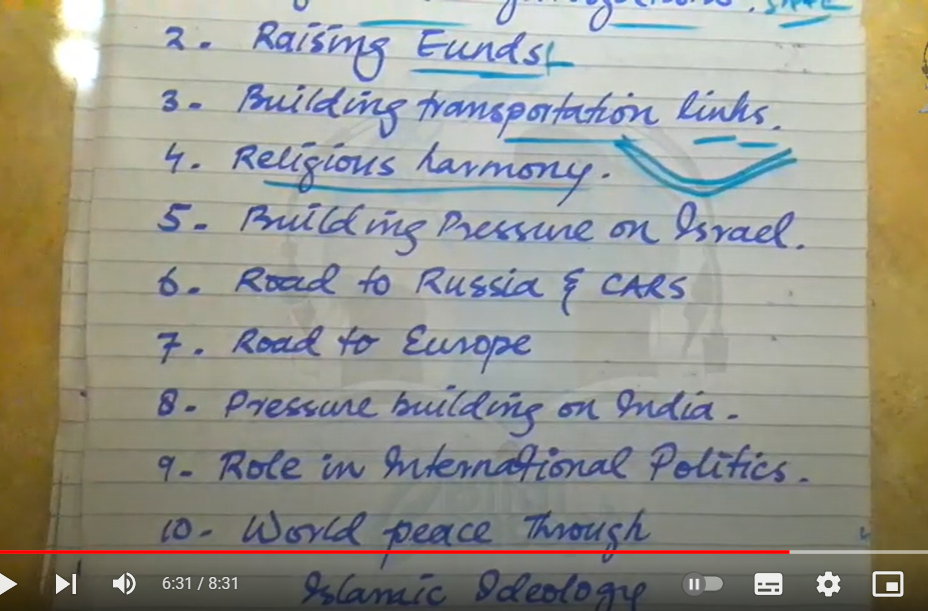 2. Raising Funds
3. Building transportation links.
4. Religious harmony.
5. Building Pressure on Israel.
6. Road to Russia & CARS
7. Road to Europe
8. Pressure building on India.
9. Role in International Politics.
10. World peace Through
Islamic Ideology
6:31 / 8:31